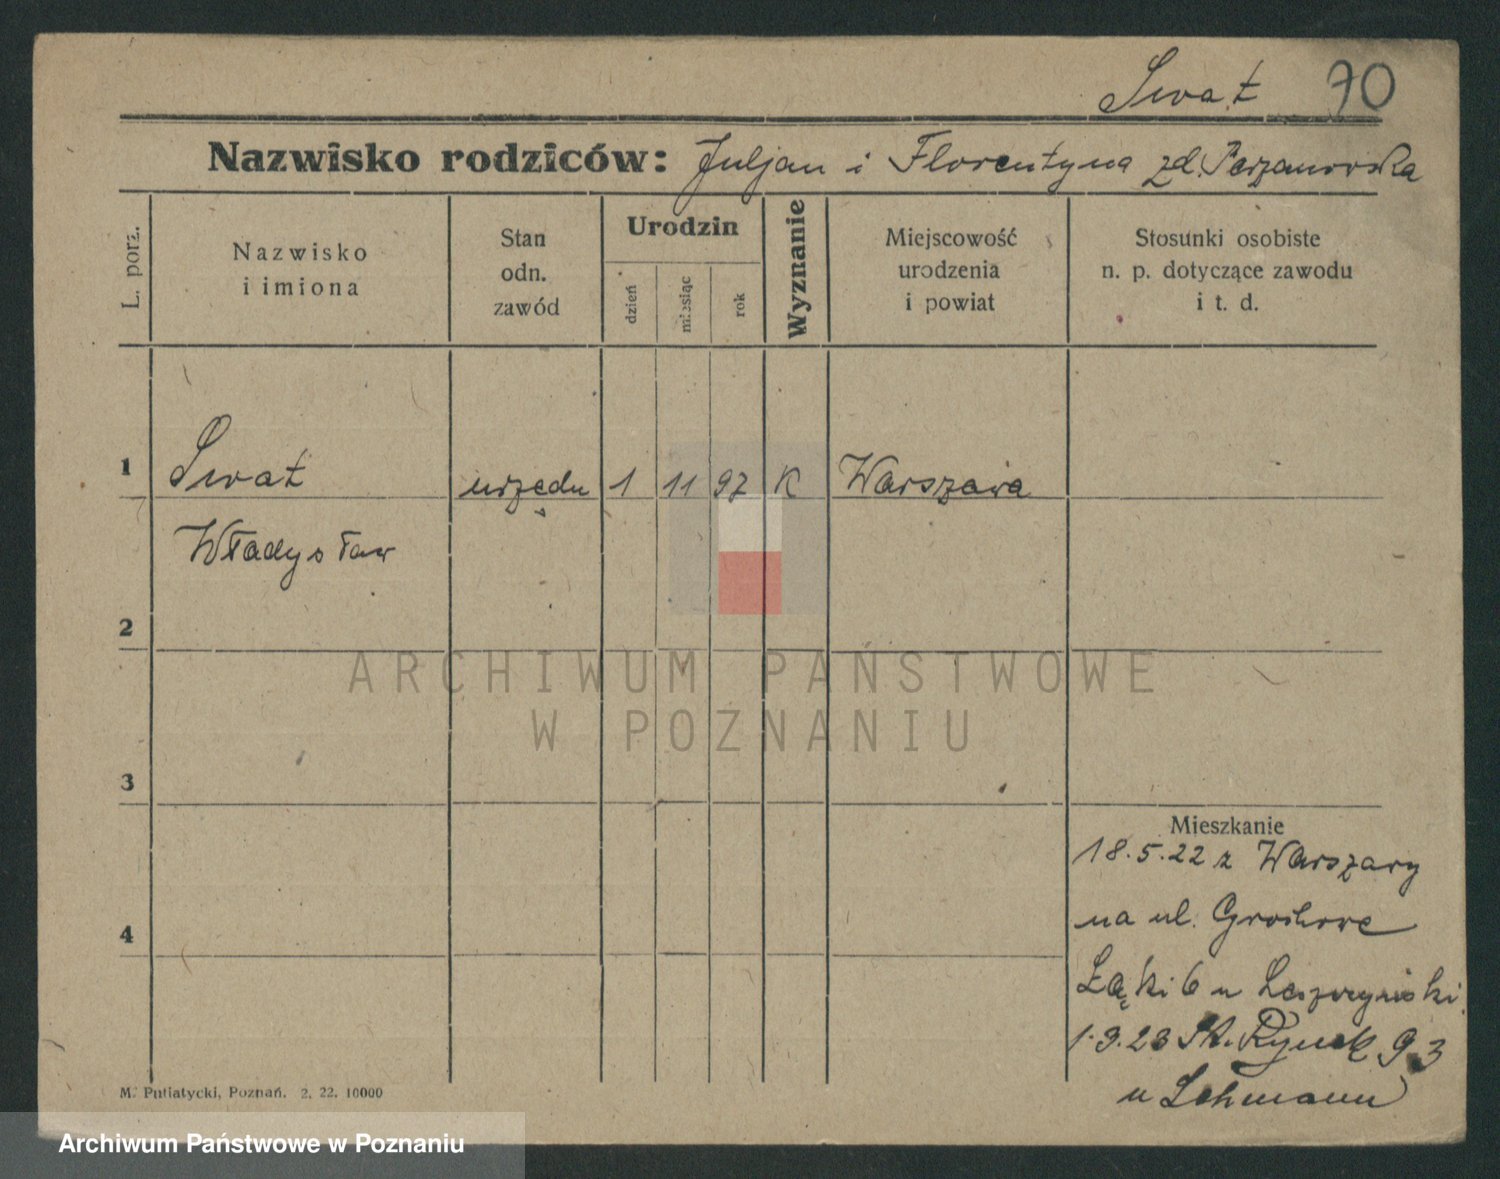 Swat 70
Nazwisko rodziców: Juljan i Florentyna zd. Perzanowska
L. porz.
Nazwisko
i imiona
Stan
odn.
zawód
Urodzin
dzień
miesiąc
rok
Wyznanie
Miejscowość
urodzenia
i powiat
Stosunki osobiste
n. p. dotyczące zawodu
i t. d.
1 Swat urzędn 1 11 97 K Warszawa
Władysław
2
3
4
Mieszkanie
18.5.22 z Warszawy
na ul. Grochowe
Łąki 6 u
1.9.23 St. Rynek 93
u Lehmann
M. Putiatycki, Poznań. 2. 22. 10000
ARCHIWUM PAŃSTWOWE
W POZNANIU
Archiwum Państwowe w Poznaniu